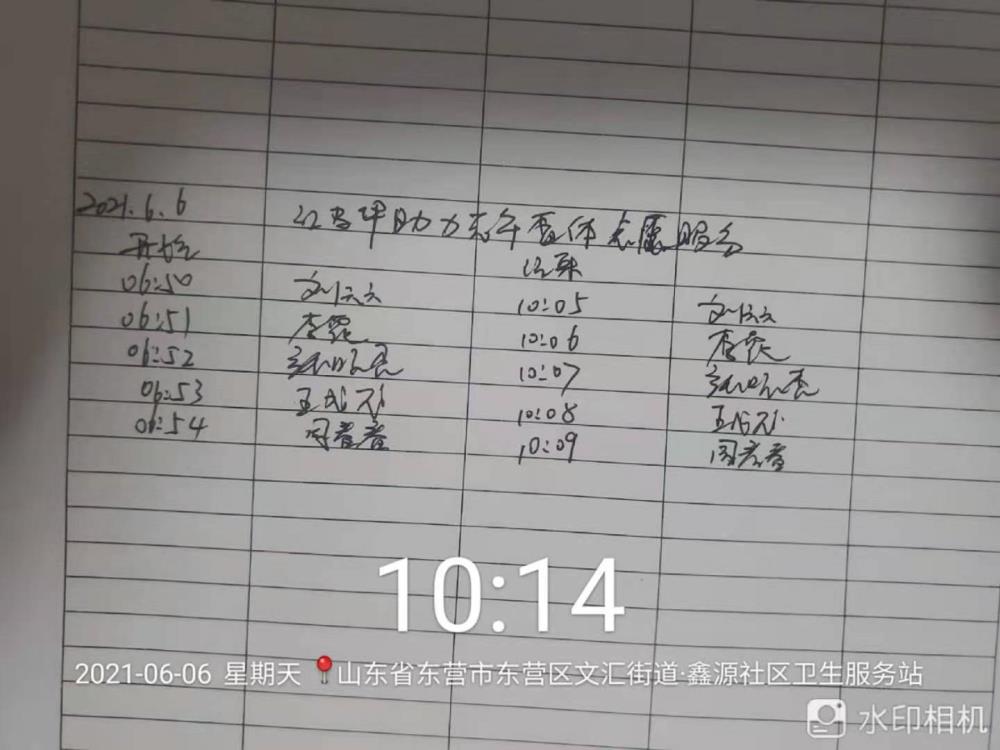 2021.6.6 红马甲助力老年查体志愿服务
开始 结束
06:50 刘云云 10:05 刘云云
06:51 李霞 10:06 李霞
06:52 10:07
06:53 王成 10:08 王成
06:54 10:09
10:14
2021-06-06 星期天 山东省东营市东营区文汇街道·鑫源社区卫生服务站
水印相机